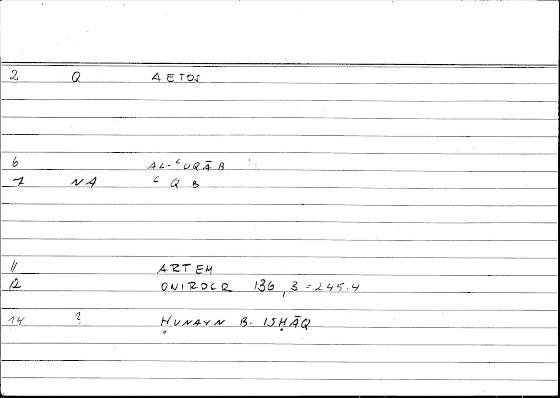 2 Q AETOS
6 AL-ʿUQĀB
7 NA ʿQB
11 ARTEM
12 ONIROCR 136,3=245.4
14 ? ḤUNAYN B. ISḤĀQ